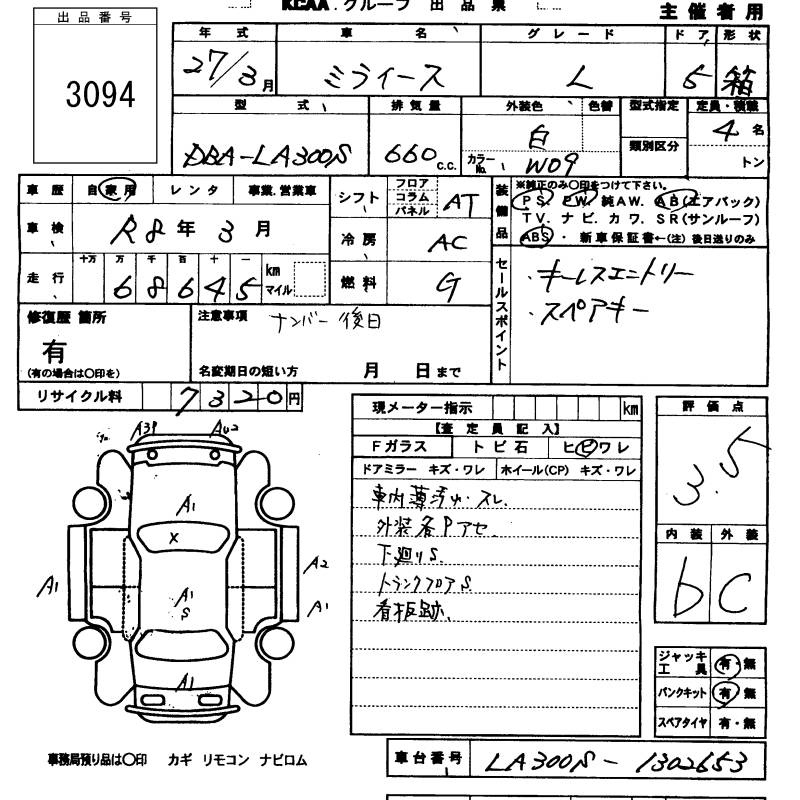 KCAA.グループ 出品票
主催者用
出品番号
3094
年式 車名 グレード ドア 形状
27/3月 ミライース L 5 箱
型式 排気量 外装色 色替 型式指定 定員・積載
DBA-LA300S 660 c.c. 白 類別区分 4名
カラーNo. W09 トン
車歴 自家用 レンタ 事業.営業車
シフト フロア コラム パネル AT
装備品 ※純正のみ○印をつけて下さい。
PS PW 純AW. AB(エアバック)
TV. ナビ. カワ. SR(サンルーフ)
ABS・新車保証書←(注)後日送りのみ
車検 R8年3月
冷房 AC
走行 十万 万 千 百 十 一 km マイル
68645
燃料 G
セールスポイント
・キーレスエントリー
・スペアキー
修復歴 箇所
有
(有の場合は○印を)
注意事項 ナンバー後日
名変期日の短い方 月 日まで
リサイクル料 7320円
現メーター指示 km
【査定員記入】
Fガラス トビ石 ヒビワレ
ドアミラー キズ・ワレ ホイール(CP) キズ・ワレ
車内薄汚れ・スレ.
外装各Pアセ.
下廻りS.
トランクフロアS.
看板跡.
評価点
3.5
内装 外装
b C
A1
X
A1
S
A1
A1
A2
A1
ジャッキ工具 有・無
パンクキット 有・無
スペアタイヤ 有・無
事務局預り品は○印 カギ リモコン ナビロム
車台番号 LA300S-1302653